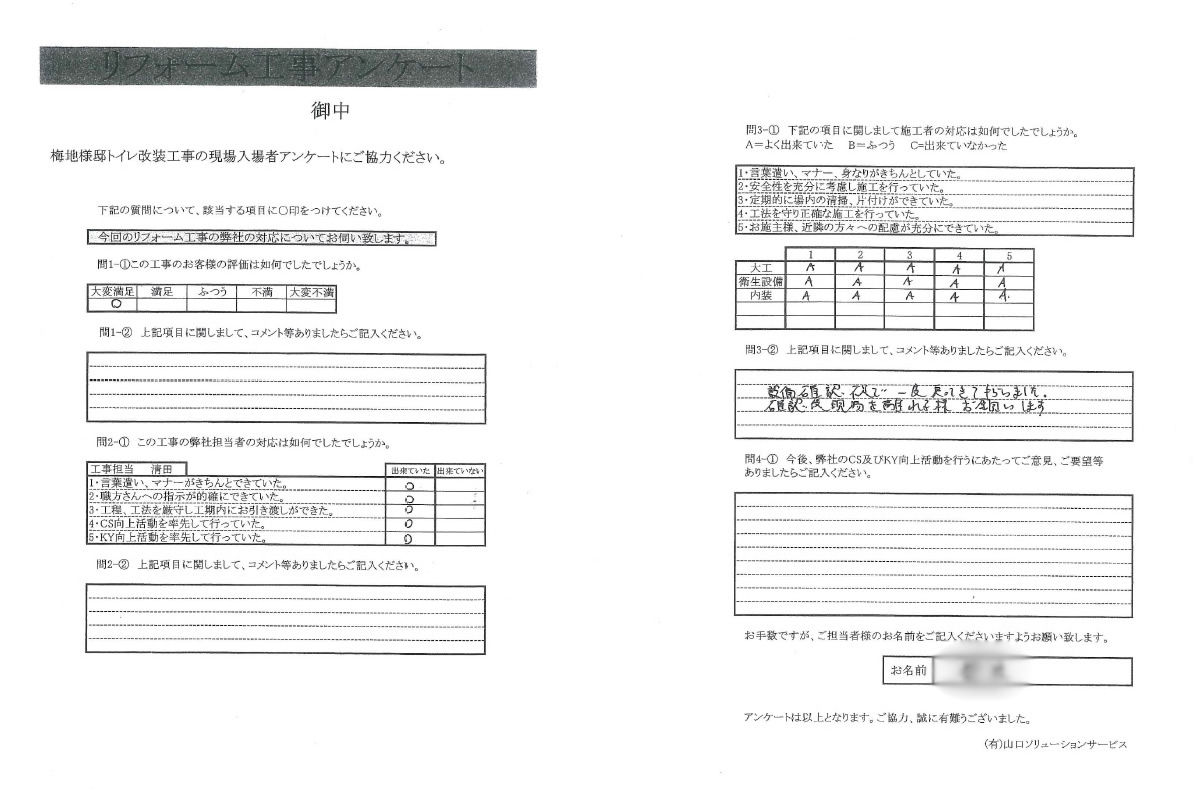 リフォーム工事アンケート
御中
梅地様邸トイレ改装工事の現場入場者アンケートにご協力ください。
下記の質問について、該当する項目に○印をつけてください。
今回のリフォーム工事の弊社の対応についてお伺い致します。
問1-①この工事のお客様の評価は如何でしたでしょうか。
大変満足 満足 ふつう 不満 大変不満
○
問1-② 上記項目に関しまして、コメント等ありましたらご記入ください。
問2-① この工事の弊社担当者の対応は如何でしたでしょうか。
工事担当 清田 出来ていた 出来ていない
1・言葉遣い、マナーがきちんとできていた。 ○
2・職方さんへの指示が的確にできていた。 ○
3・工程、工法を厳守し工期内にお引き渡しができた。 ○
4・CS向上活動を率先して行っていた。 ○
5・KY向上活動を率先して行っていた。 ○
問2-② 上記項目に関しまして、コメント等ありましたらご記入ください。
問3-① 下記の項目に関しまして施工者の対応は如何でしたでしょうか。
A=よく出来ていた B=ふつう C=出来ていなかった
1・言葉遣い、マナー、身なりがきちんとしていた。
2・安全性を充分に考慮し施工を行っていた。
3・定期的に場内の清掃、片付けができていた。
4・工法を守り正確な施工を行っていた。
5・お施主様、近隣の方々への配慮が充分にできていた。
1 2 3 4 5
大工 A A A A A
衛生設備 A A A A A
内装 A A A A A
問3-② 上記項目に関しまして、コメント等ありましたらご記入ください。
設備確認 一度戻ってきて もらいました。
確認後現場を離れる様 お願いします
問4-① 今後、弊社のCS及びKY向上活動を行うにあたってご意見、ご要望等
ありましたらご記入ください。
お手数ですが、ご担当者様のお名前をご記入くださいますようお願い致します。
お名前
アンケートは以上となります。ご協力、誠に有難うございました。
(有)山口ソリューションサービス